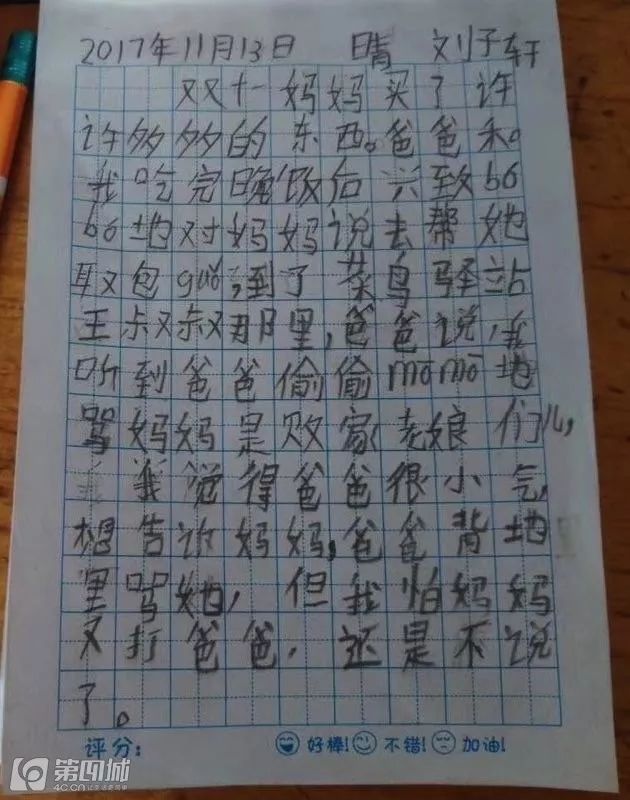 2017年11月13日 晴 刘子轩
双十一妈妈买了许
许多多的东西。爸爸和。
我吃完晚饭后兴致bó
bó地对妈妈说去帮她
取包guǒ,到了菜鸟驿站
王叔叔那里,爸爸说,我
听到爸爸偷偷mōmō地
骂妈妈是败家老娘们儿,
我说得爸爸很小气,
想告诉妈妈,爸爸背地
里骂她,但我怕妈妈
又打爸爸,还是不说
了。
评分: 好棒! 不错! 加油!
第四城
4C.CN